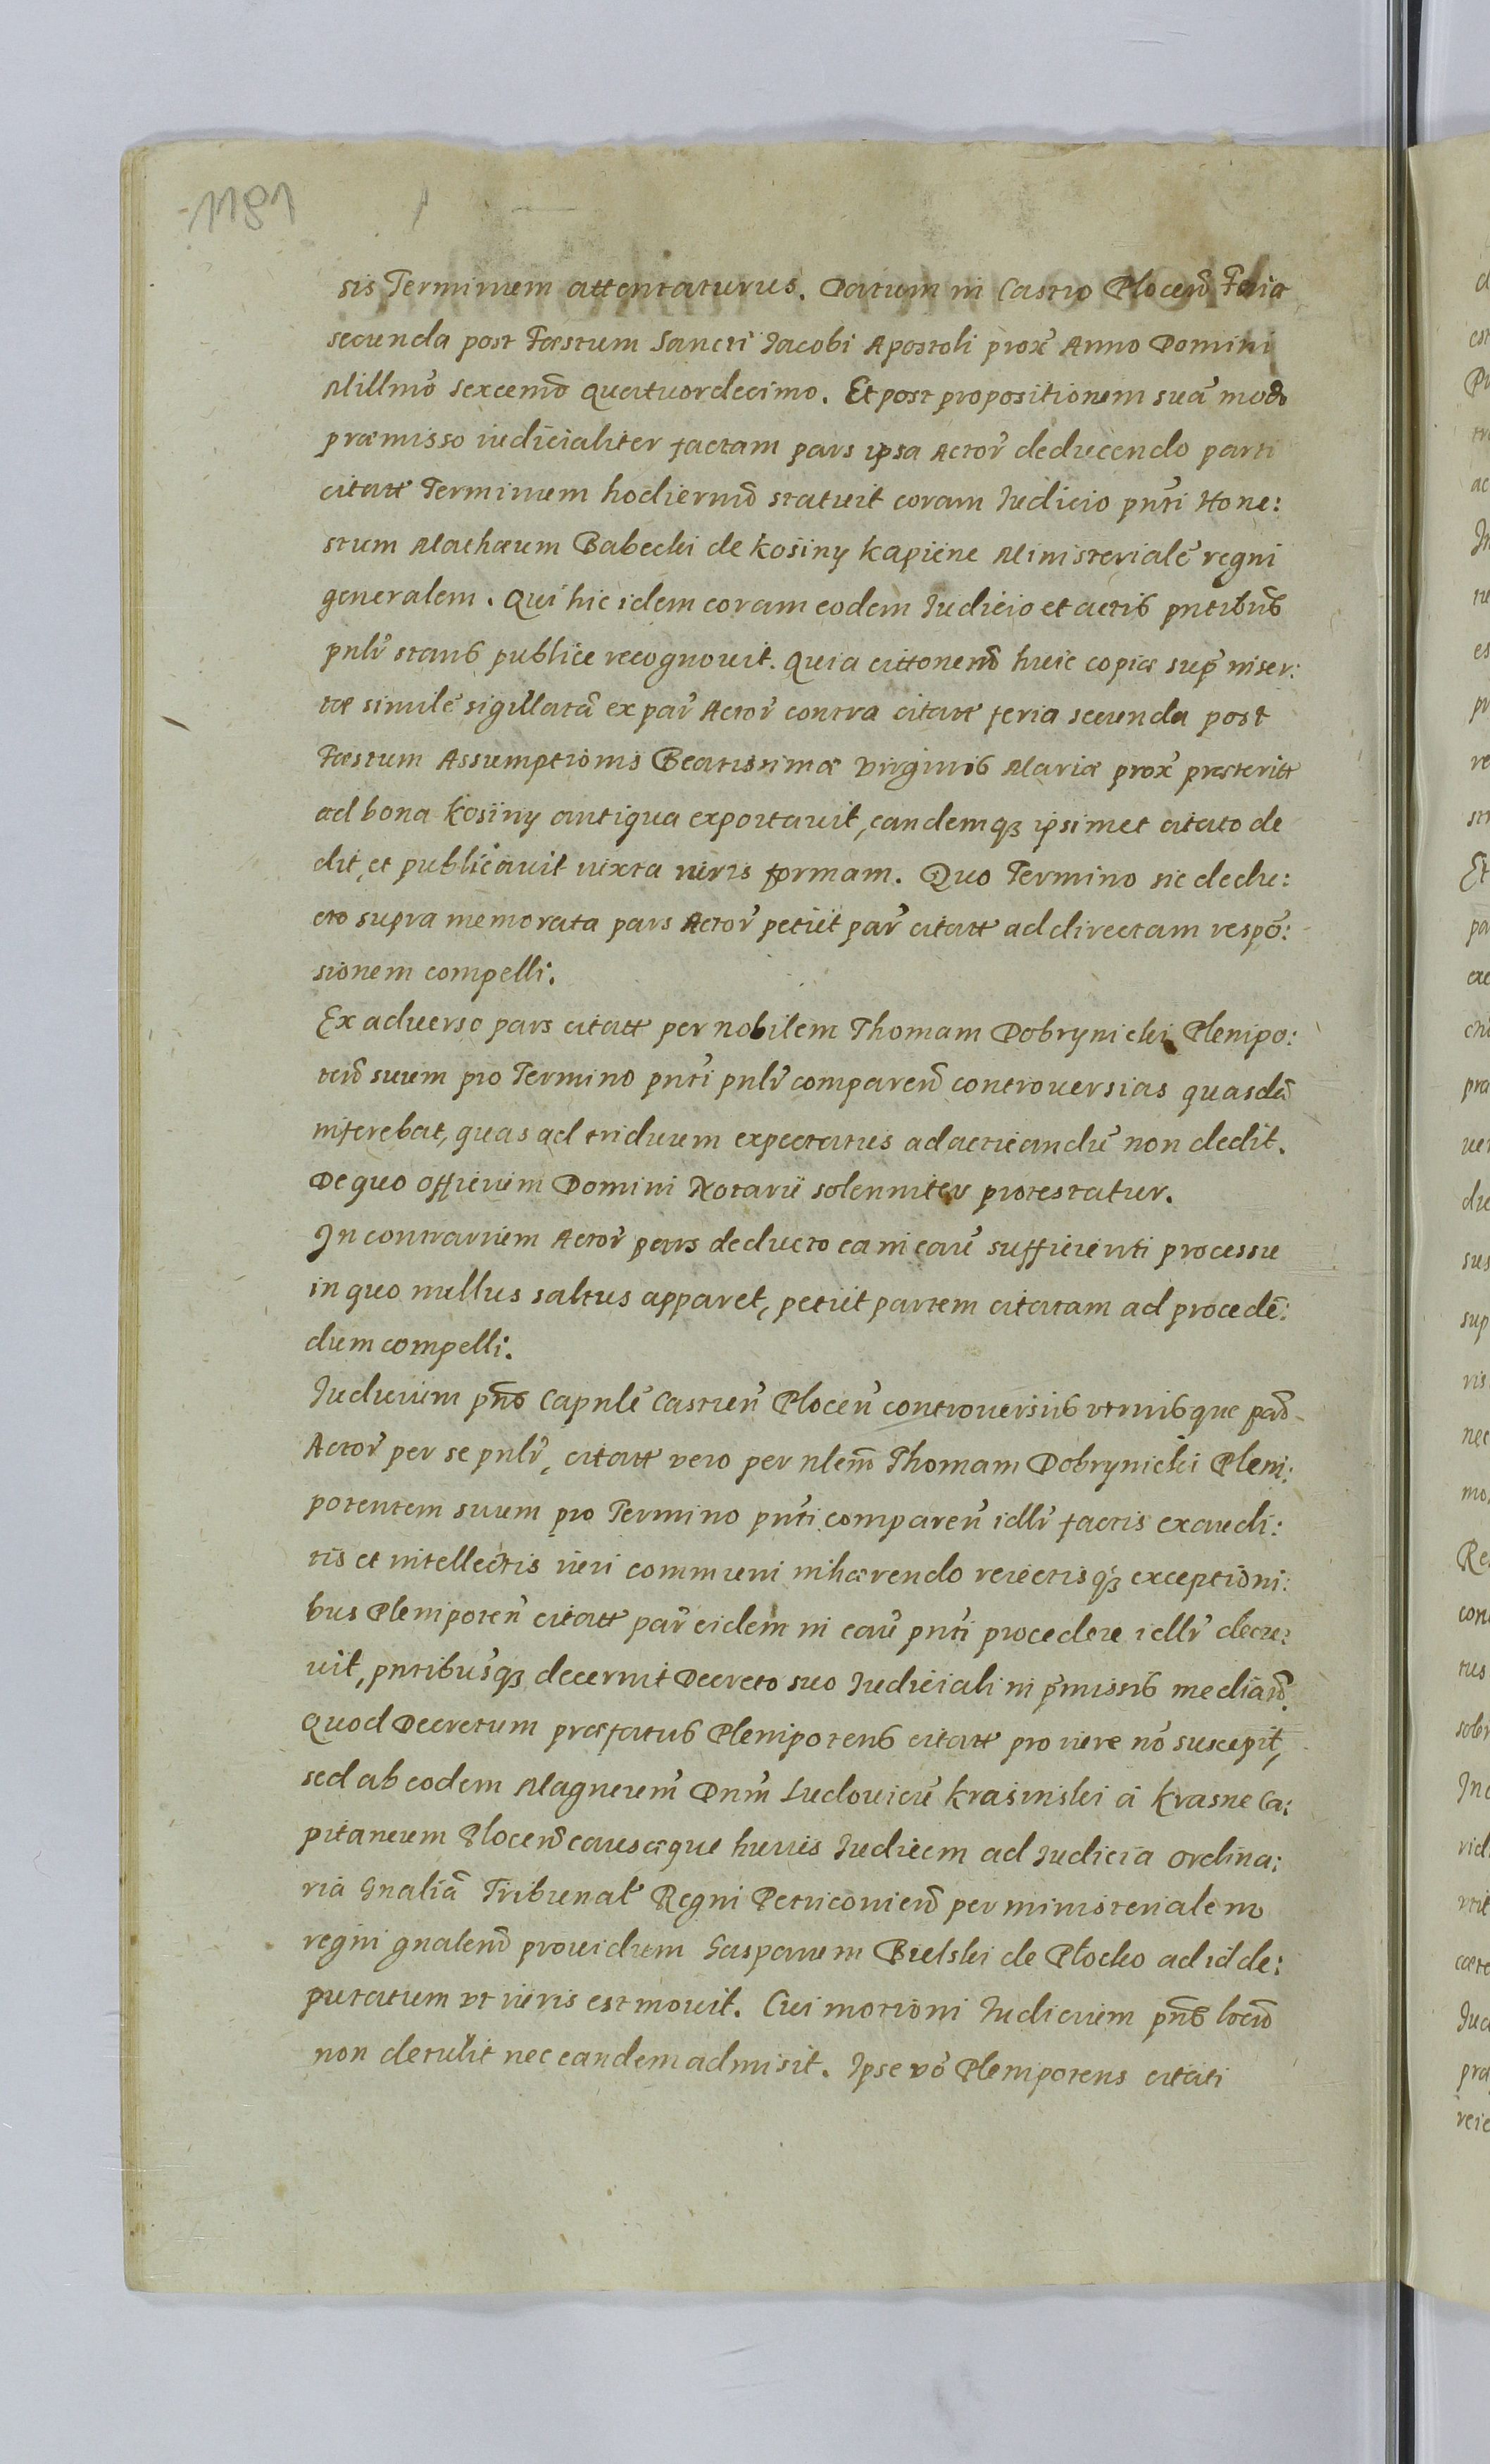 1181
sis Terminum attentaturus. Datum in Castro Plocen̄ Feria
secunda post Fæstum Sancti Jacobi Apostoli prox̄ Anno Domini
Millm̄o sexcenō quatuordecimo. Et post propositionem suā modo
præmisso iudicialiter factam pars ipsa Actor̄ deducendo parti
citatt Terminum hodiernō statuit coram Iudicio pn̄ti Hone:
stum Mathæum Babecki de Kosiny Kapiene Ministerialē regni
generalem. Qui hic idem coram eodem Iudicio et actis pntibus̄
pnlr̄ stans publice recognouit. Quia cittonem̄ huic copiæ sup̄ inser:
tæ similē sigillatā ex par̄ Actor̄ contra citatt feria secunda post
Fæstum Assumptionis Beatissimæ Virginis Mariæ prox̄ præteritt
ad bona Kosiny antiqua exportauit, eandemqꝫ ipsimet citato de
dit, et publicauit iuxta iuris formam. Quo Termino sic dedu:
cto supra memorata pars Actor̄ petiit par̄ citatt ad directam respō:
sionem compelli.
Ex aduerso pars citatt per nobilem Thomam Dobrynicki Plenipo:
ten̄ suum pro Termino pn̄ti pnlr̄ comparen̄ controuersias quasdā
inferebat, quas ad triduum expectatus ad acticandū non dedit.
De quo officium Domini Notarii solenniter protestatur.
In contrarium Actor̄ pars deducto ea in caū sufficienti processu
in quo nullus saltus apparet, petiit partem citatam ad procedē:
dum compelli.
Iudicium pn̄s Capnlē Castren̄ Plocen̄ controuersiis vtriusque par̄
Actor̄ per se pnlr̄, citatt vero per nlem̄ Thomam Dobrynicki Pleni:
potentem suum pro Termino pn̄ti comparen̄ idlr̄ factis exaudi:
tis et intellectis iuri communi inhærendo reiectisqꝫ exceptioni:
bus Plenipoten̄ citatt par̄ eidem in caū pn̄ti procedere idlr̄ decre:
uit, pntibusqꝫ decernit Decreto suo Iudiciali in p̄missis mediañ.
Quod Decretum præfatus Plenipotens citatt pro iure nō suscepit,
sed ab eodem Magncum̄ Dnm̄ Ludouicū Krasinski à Krasne Ca:
pitaneum Plocen̄ causæque huius Iudicem ad Iudicia Ordina:
ria Gnaliā Tribunal̄ Regni Petricouien̄ per ministerialem
regni gnalem̄ prouidum Gasparum Bielski de Płocko ad id de:
putatum vt iuris est mouit. Cui motioni Iudicium pn̄s locum̄
non detulit nec eandem admisit. Ipse vō Plenipotens citati